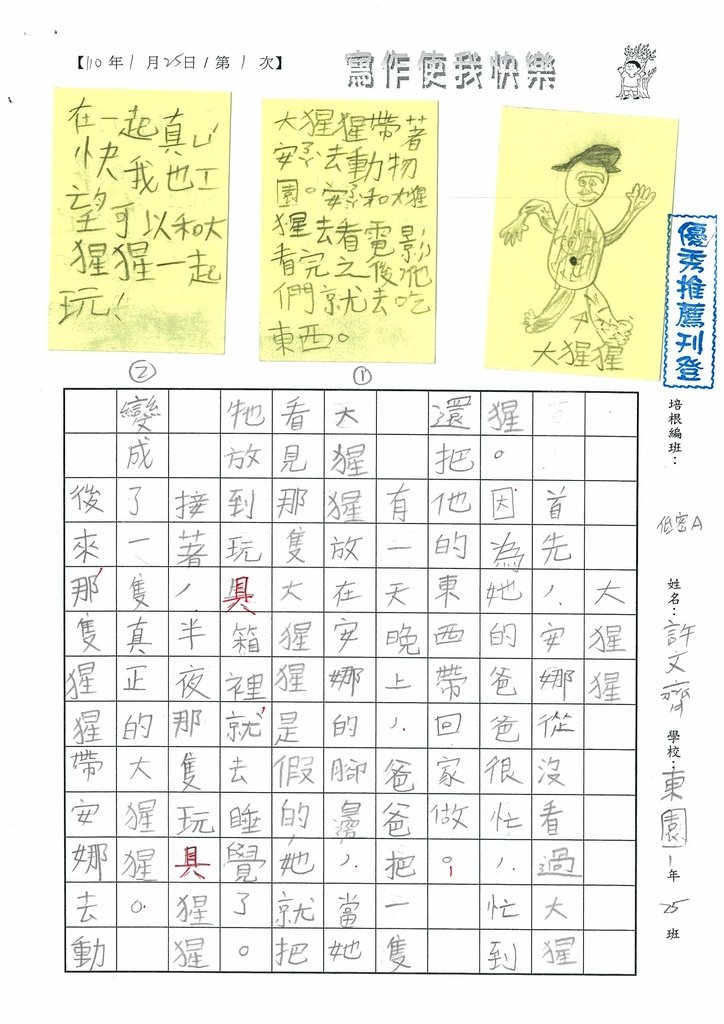 【110年1月25日/第1次】
寫作使我快樂
優秀推薦刊登
培根編班：低密A
姓名：許文齊
學校：東園1年25班
大猩猩
大猩猩
首先、安娜從沒看過大猩
猩。因為她的爸爸很忙、忙到
還把他的東西帶回家做。
有一天晚上、爸爸把一隻
大猩猩放在安娜的腳邊、當她
看見那隻大猩猩是假的，她就把
牠放到玩具箱裡就去睡覺了。
接著、半夜那隻玩具猩猩
變成了一隻真正的大猩猩。
後來那隻猩猩帶安娜去動
①
大猩猩帶著
安 去動物
園。安 和大猩
猩去看電影
看完之後他
們就去吃
東西。
②
在一起真
快 我也
望可以和大
猩猩一起
玩！